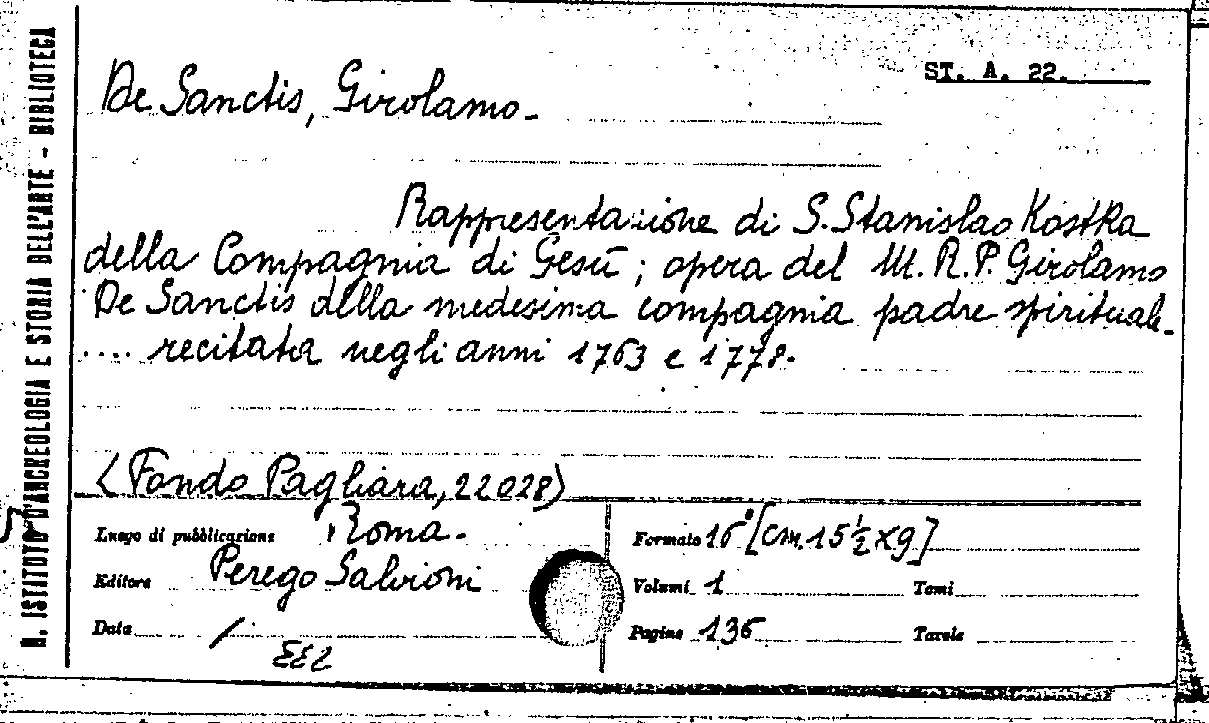 R. ISTITUTO D'ARCHEOLOGIA E STORIA DELL'ARTE - BIBLIOTECA
ST. A. 22.
De Sanctis, Girolamo.
Rappresentazione di S. Stanislao Kostka
della Compagnia di Gesù; opera del M.R.P. Girolamo
De Sanctis della medesima compagnia padre spirituale.
.... recitata negli anni 1763 e 1778.
(Fondo Pagliara, 22028)
Luogo di pubblicazione Roma.
Editore Perego Salvioni
Data /
Formato 16° [cm. 15½ x 9]
Volumi 1 Tomi
Pagine 136 Tavole